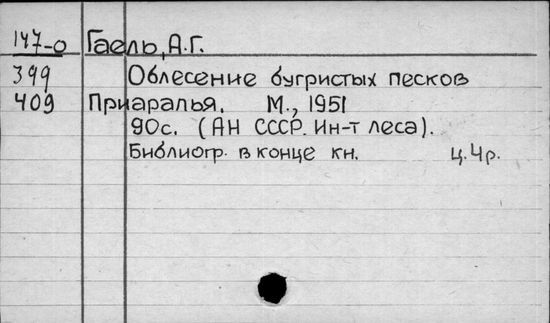 147-о Гаель, А.Г.
399 Облесение бугристых песков
409 Приаралья. М., 1951
90с. (АН СССР. Ин-т леса).
Библиогр. в конце кн. ц. 4р.